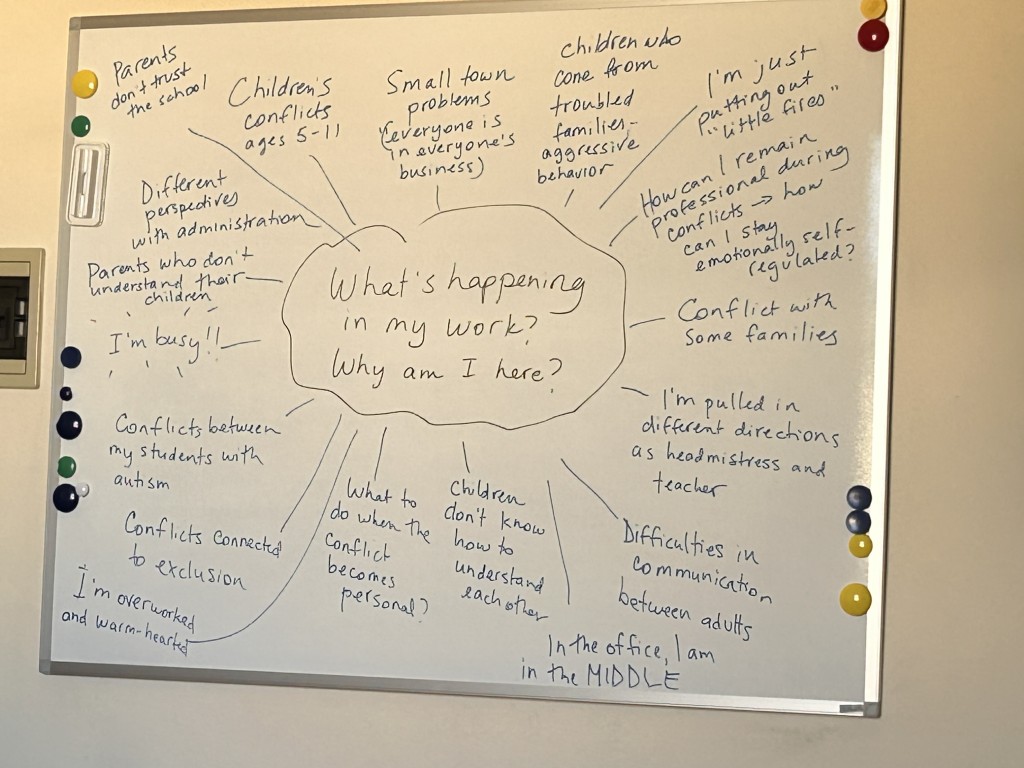 Parents
don't trust
the school
Children's
conflicts
ages 5-11
Small town
problems
(everyone is
in everyone's
business)
children who
come from
troubled
families-
aggressive
behavior
I'm just
putting out
"little fires"
How can I remain
professional during
conflicts → how
can I stay
emotionally self-
regulated?
Different
perspectives
with administration
Parents who don't
understand their
children
I'm busy!!
What's happening
in my work?
Why am I here?
Conflict with
some families
I'm pulled in
different directions
as headmistress and
teacher
Conflicts between
my students with
autism
Conflicts connected
to exclusion
I'm overworked
and warm-hearted
What to
do when the
conflict
becomes
personal?
Children
don't know
how to
understand
each other
Difficulties in
communication
between adults
In the office, I am
in the MIDDLE